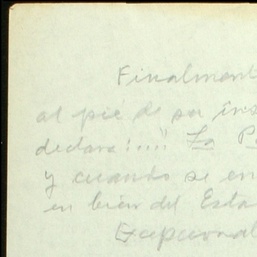 Finalment
al pié de su ins
declara:...." La P
y cuanto se en
en bien del Esta
Excepcional